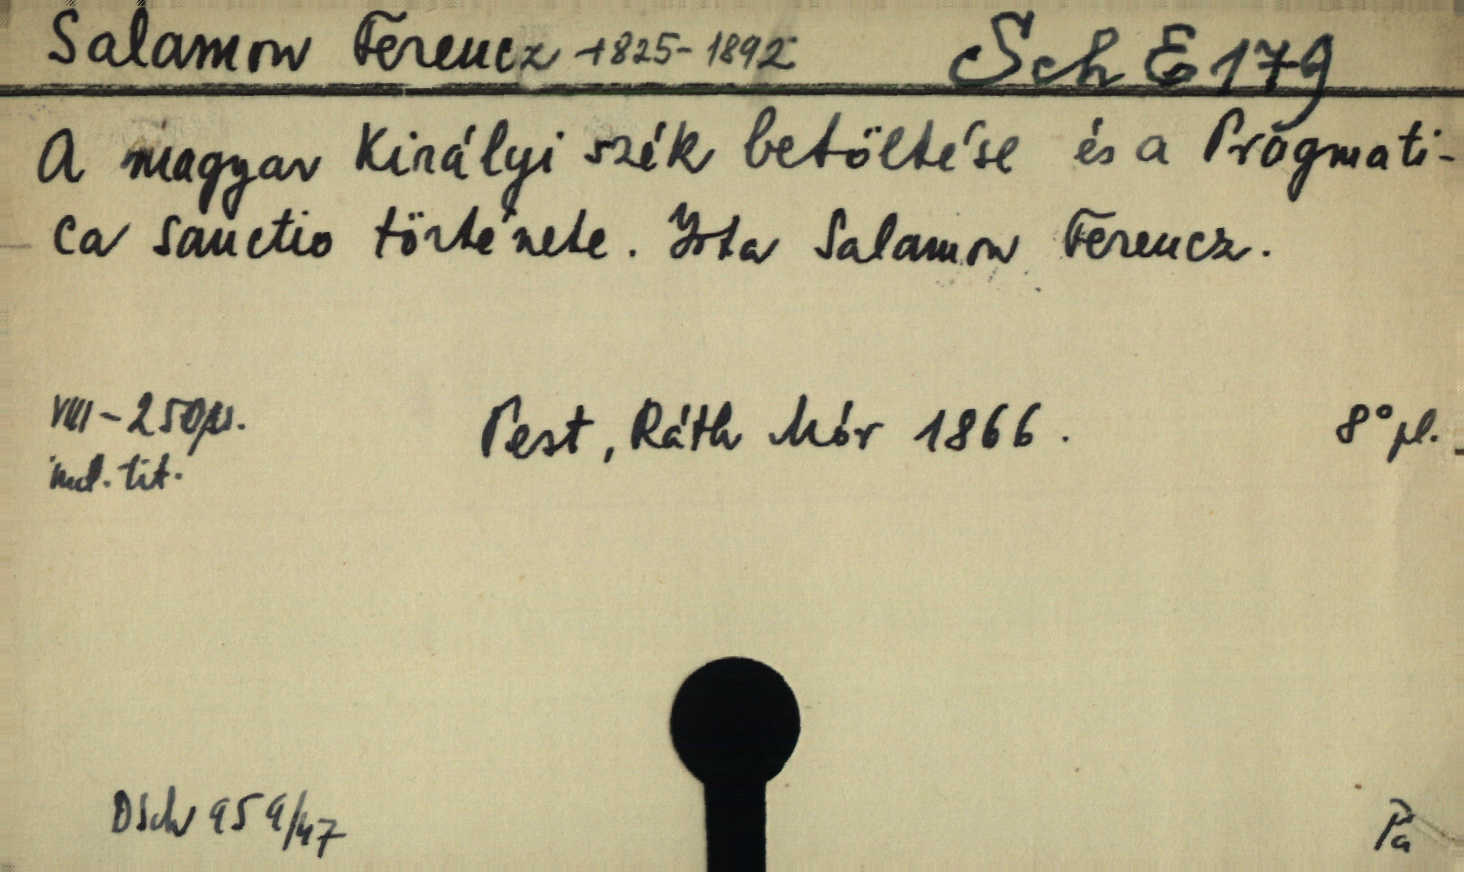 Salamon Ferencz 1825-1892 Sch E 179
A magyar Királyi szék betöltése és a Pragmati-
ca sanctio története. Irta Salamon Ferencz.
VIII-250 p.
incl. tit.
Pest, Ráth Mór 1866. 8° pl.
DSch 959/47 Pa